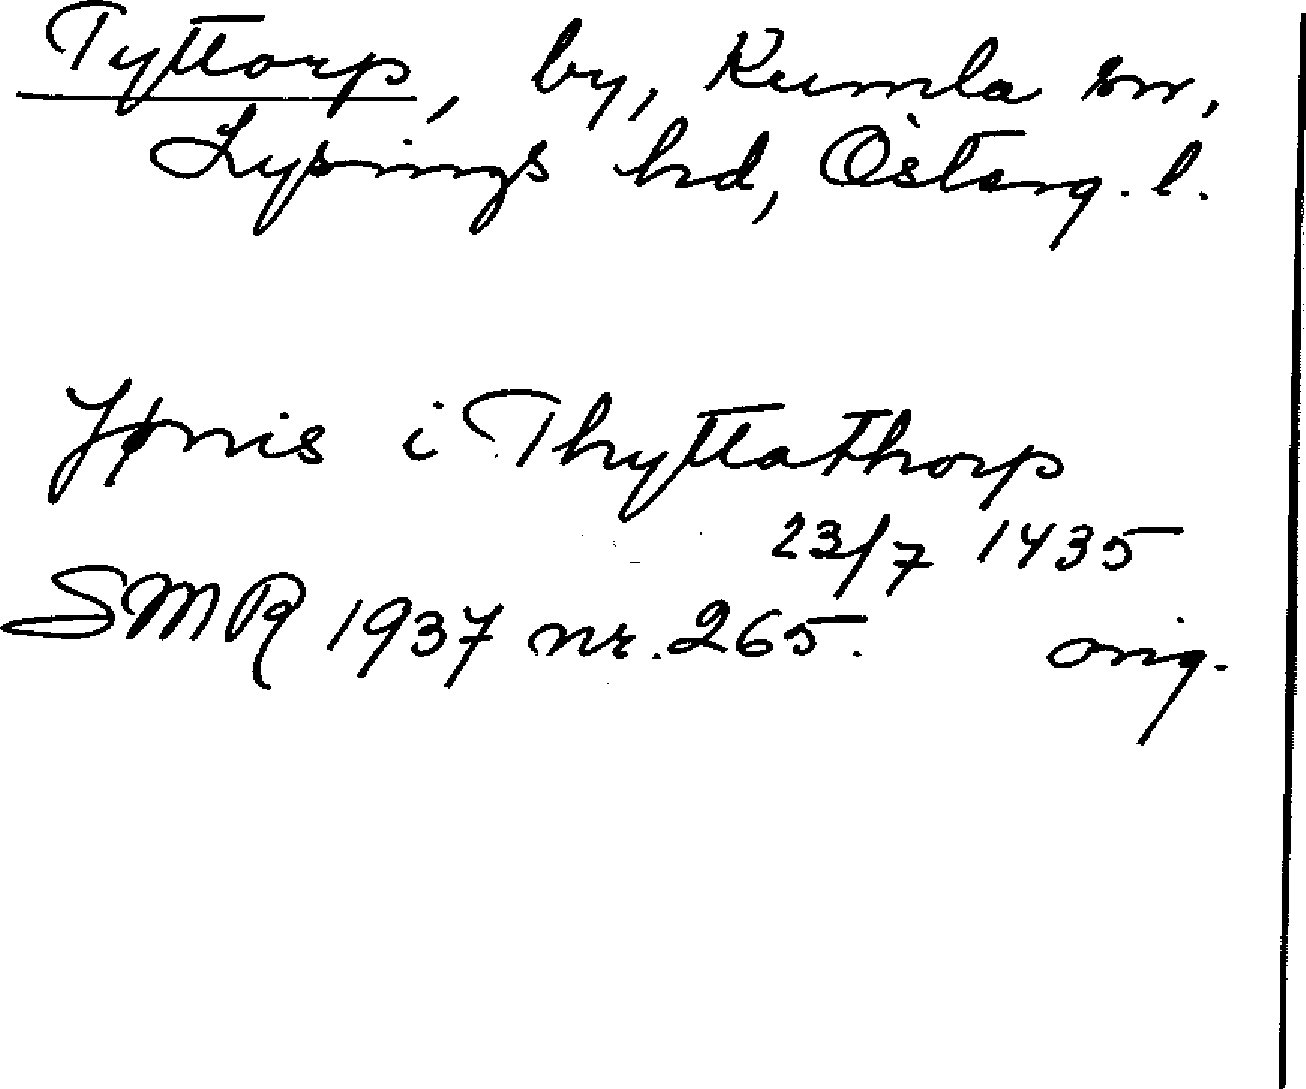 Tyttorp, by, Kumla sn,
Lysings hd, Österg. l.
Jønis i Thyttathorp
23/7 1435
SMR 1937 nr. 265. orig.